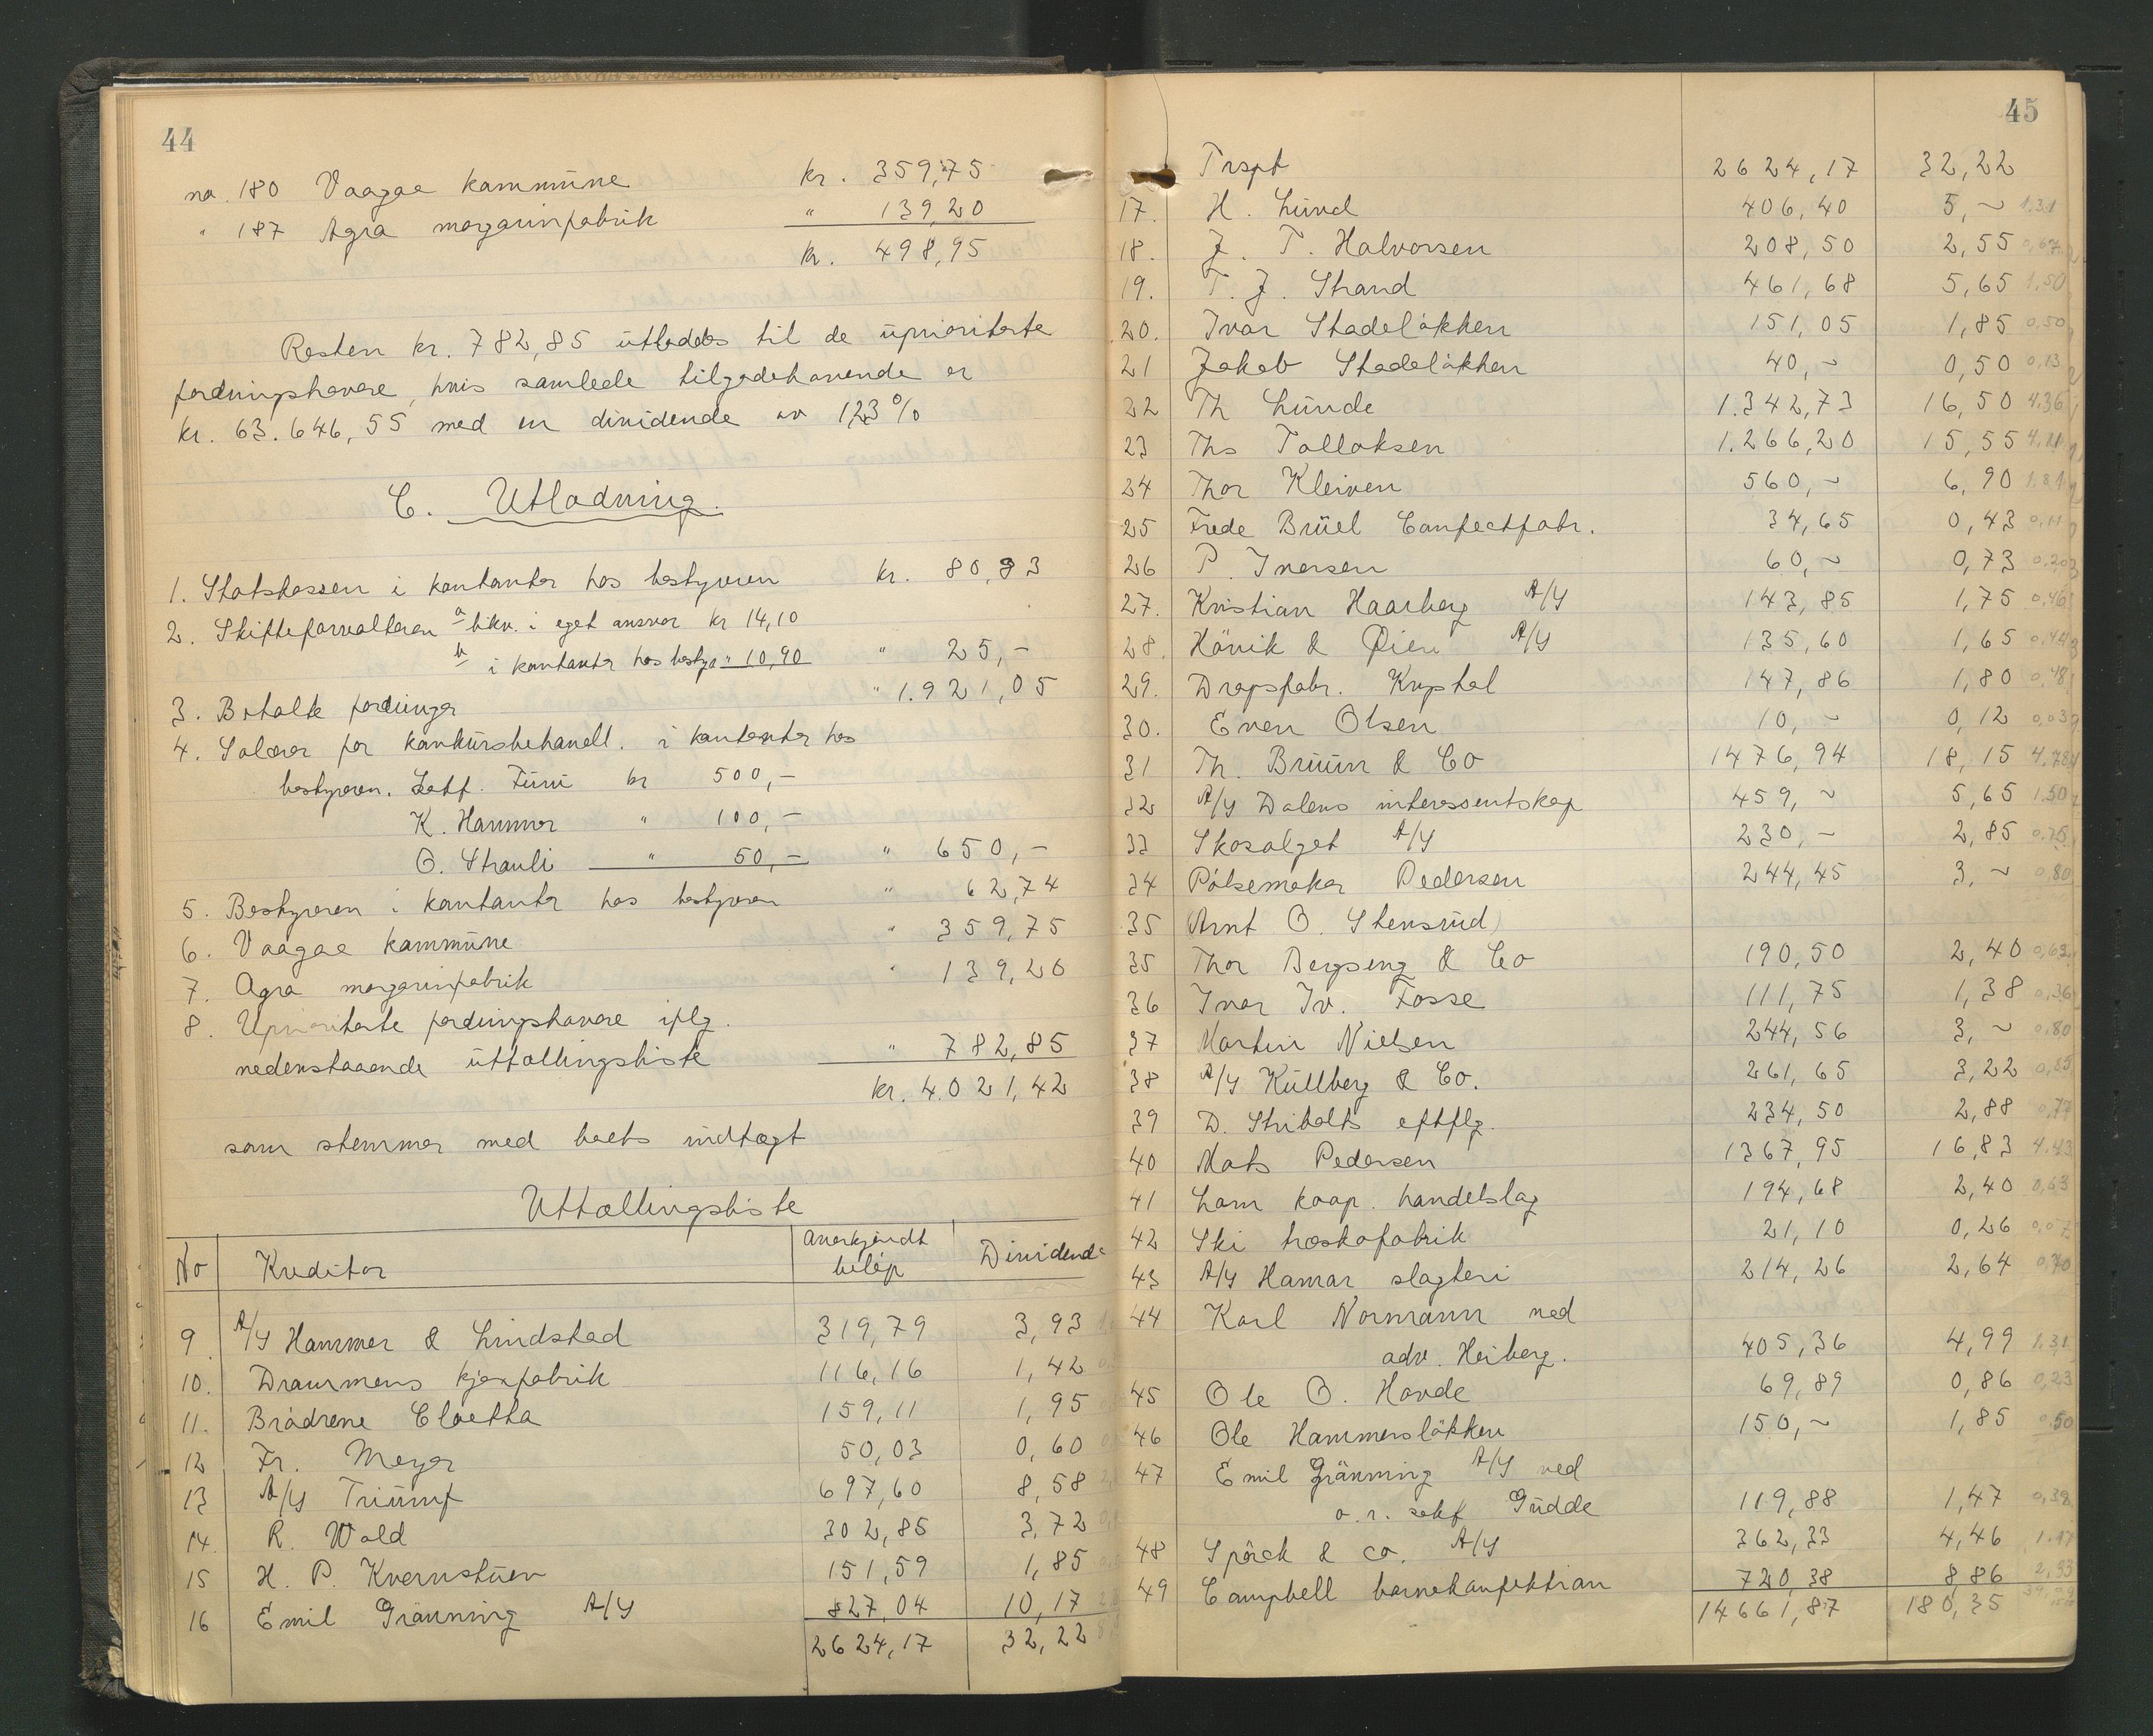 44
no. 180 Vaagaa kommune kr. 359,75
" 187 Agra margarinfabrik " 139,20
kr. 498,95
Resten kr. 782,85 utloddes til de uprioriterte
fordringshavere, hvis samlede tilgodehavende er
kr. 63.646,55 med en dividende av 1,23%
C. Utlodning.
1. Statskassen i kontanter hos bestyreren kr. 80,83
2. Skifteforvalteren a i eget ansvar kr 14,10
b i kontanter hos bestyr " 10,90 " 25,-
3. Betalte fordringer " 1.921,05
4. Salærer for konkursbehandl. i kontanter hos
bestyreren. Furu kr 500,-
K. Hammer " 100,-
O. Strauli " 50,- " 650,-
5. Bestyreren i kontanter hos bestyreren " 62,74
6. Vaagaa kommune " 359,75
7. Agra margarinfabrik " 139,20
8. Uprioriterte fordringshavere iflg.
nedenstaaende uttællingsliste " 782,85
kr. 4.021,42
som stemmer med boets indtægt
Uttællingsliste
No Kreditor Anerkjendt beløp Dividende
9. A/S Hammer & Lindstad 319,79 3,93
10. Drammens kjexfabrik 116,16 1,42
11. Brödrene Cloetta 159,11 1,95
12 Fr. Meyer 50,03 0,60
13 A/S Triumf 697,60 8,58
14. R. Wold 302,85 3,72
15 H. P. Kvernstuen 151,59 1,85
16 Emil Gränning A/S 827,04 10,17
2624,17 32,22
45
Trspt 2624,17 32,22
17. H. Lund 406,40 5,~ 1.31
18. J. T. Halvorsen 208,50 2,55 0,67
19. T. J. Strand 461,68 5,65 1,50
20. Ivar Stadelökken 151,05 1,85 0,50
21 Jakob Stadelökken 40,~ 0,50 0,13
22 Th Lunde 1.342,73 16,50 4.36
23 Ths Tollaksen 1.266,20 15,55 4.11
24 Thor Kleiven 560,~ 6,90 1.81
25 Frede Brüel Confectfabr. 34,65 0,43 0,11
26 P. Iversen 60,~ 0,73 0,20
27. Kristian Haarberg A/S 143,85 1,75 0,46
28. Hövik & Øien A/S 135,60 1,65 0,44
29. Dropsfabr. Krystal 147,86 1,80 0,48
30. Even Olsen 10,- 0,12 0,03
31 Th. Bruun & Co 1476,94 18,15 4,78
32 A/S Dalens interessentskap 459,~ 5,65 1.50
33 Skosalget A/S 230,- 2,85 0,75
34 Pölsemaker Pedersen 244,45 3,~ 0,80
35 (Arnt O. Stensrud)
35 Thor Bergseng & Co 190,50 2,40 0,62
36 Ivar Iv. Fosse 111,75 1,38 0,36
37 Martin Nielsen 244,56 3,~ 0,80
38 A/S Kullberg & Co. 261,65 3,22 0,85
39 D. Stribolts eftflg. 234,50 2,88 0,77
40 Mats Pedersen 1367,95 16,83 4.43
41 Lom koop. handelslag 194,68 2,40 0,63
42 Ski træskofabrik 21,10 0,26 0,07
43 A/S Hamar slagteri 214,26 2,64 0,70
44 Karl Normann ved
adv. Heiberg. 405,36 4,99 1.31
45 Ole O. Hovde 69,89 0,86 0,23
46 Ole Hammerslökken 150,~ 1,85 0,50
47 Emil Gränning A/S ved
o.r. sakf. Gudde 119,88 1,47 0,39
48 Spörck & co. A/S 362,33 4,46 1.17
49 Campbell barnekonfektion 720,38 8,86 2,33
14661,87 180,35